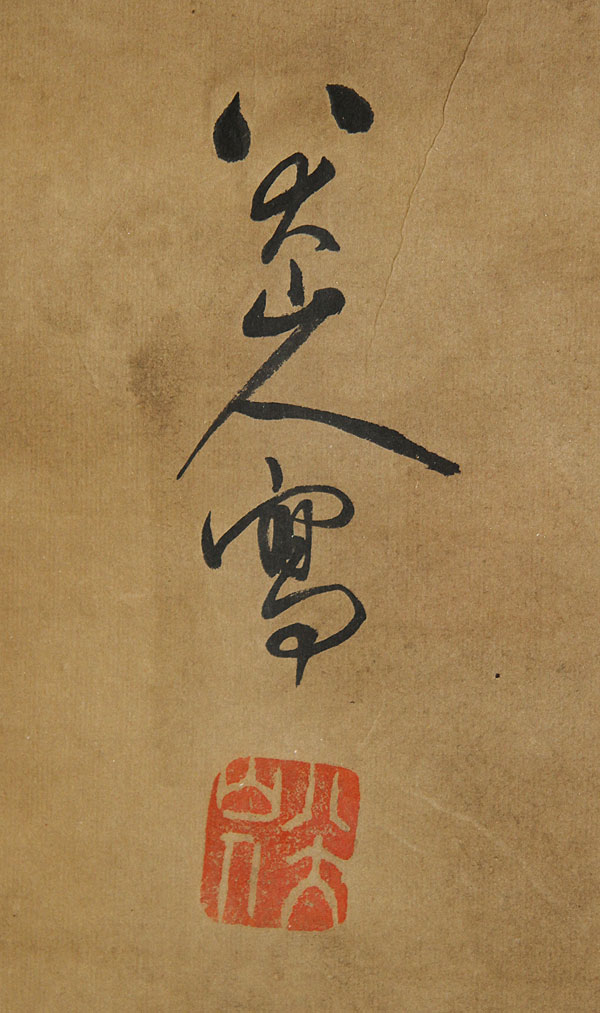 八大山人寫
八大山人